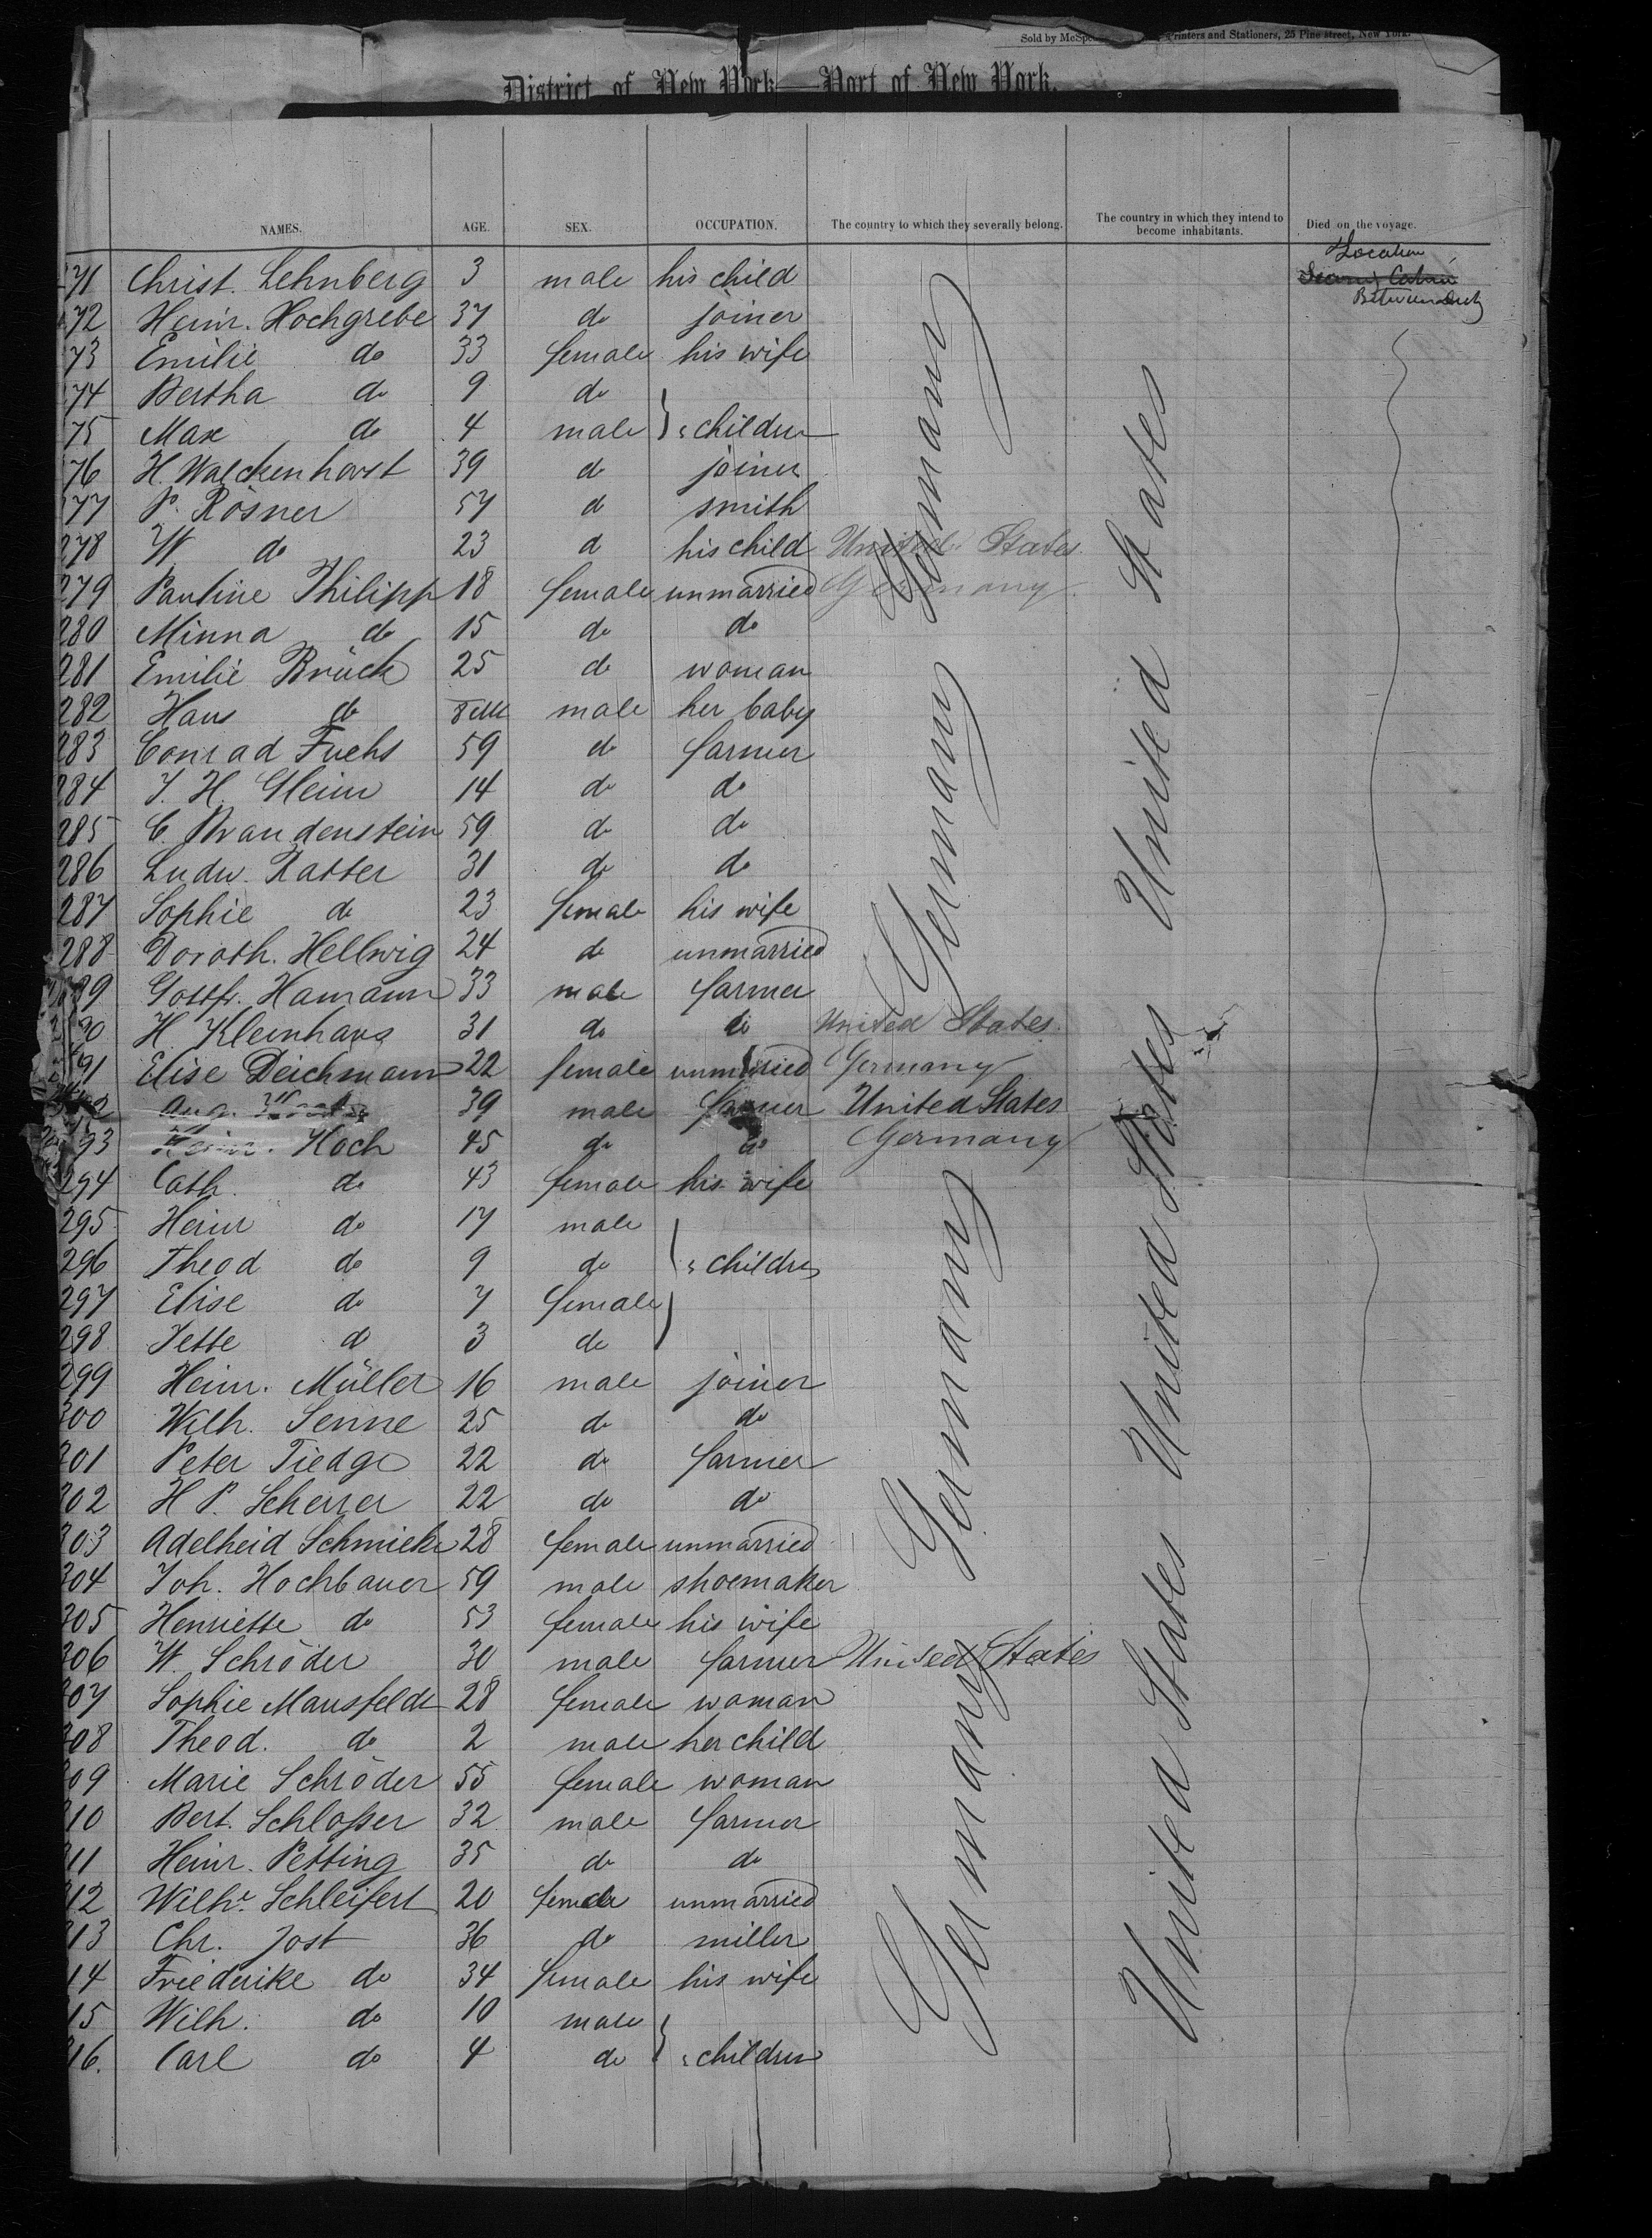 Sold by McSp Printers and Stationers, 25 Pine street, New York.
District of New York—Port of New York.
NAMES. AGE. SEX. OCCUPATION. The country to which they severally belong. The country in which they intend to become inhabitants. Died on the voyage.
Location
Betweendeck
71 Christ. Lehnberg 3 male his child
72 Heinr. Hochgrebe 37 do joiner
73 Emilie do 33 female his wife
74 Bertha do 9 do
75 Max do 4 male } children
76 H. Walckenhorst 39 do joiner
77 P. Rösner 57 do smith
278 W do 23 do his child United States
279 Pauline Philipp 18 female unmarried Germany
280 Minna do 15 do do
281 Emilie Brück 25 do woman
282 Hans do 8 male her baby
283 Conrad Fuchs 59 do farmer
284 J. H. Gleim 14 do do
285 C. Brandenstein 59 do do
286 Ludw. Ratter 31 do do
287 Sophie do 23 female his wife
288 Doroth. Hellwig 24 do unmarried
89 Gottfr. Hamann 33 male farmer
90 H. Kleinhans 31 do do United States
91 Elise Deichmann 22 female unmarried Germany
92 Aug. 39 male farmer United States
93 Heinr. Hoch 45 do do Germany
294 Cath. do 43 female his wife
295 Heinr do 17 male
296 Theod do 9 do } children
297 Elise do 7 female
298 Jette do 3 do
299 Heinr. Müller 16 male joiner
300 Wilh. Senne 25 do do
301 Peter Tiedge 22 do farmer
302 H P. Scherrer 22 do do
303 Adelheid Schmicke 28 female unmarried
304 Joh. Hochbauer 59 male shoemaker
305 Henriette do 53 female his wife
306 W. Schröder 30 male farmer United States
307 Sophie Mansfeldt 28 female woman
308 Theod. do 2 male her child
309 Marie Schröder 55 female woman
310 Bert. Schloßer 32 male farmer
311 Heinr. Petting 35 do do
312 Wilhe. Schleifert 20 female unmarried
13 Chr. Jost 36 do miller
14 Friederike do 34 female his wife
15 Wilh. do 10 male
16. Carl do 4 do } children
Germany
Germany
Germany
Germany
United States
United States
United States